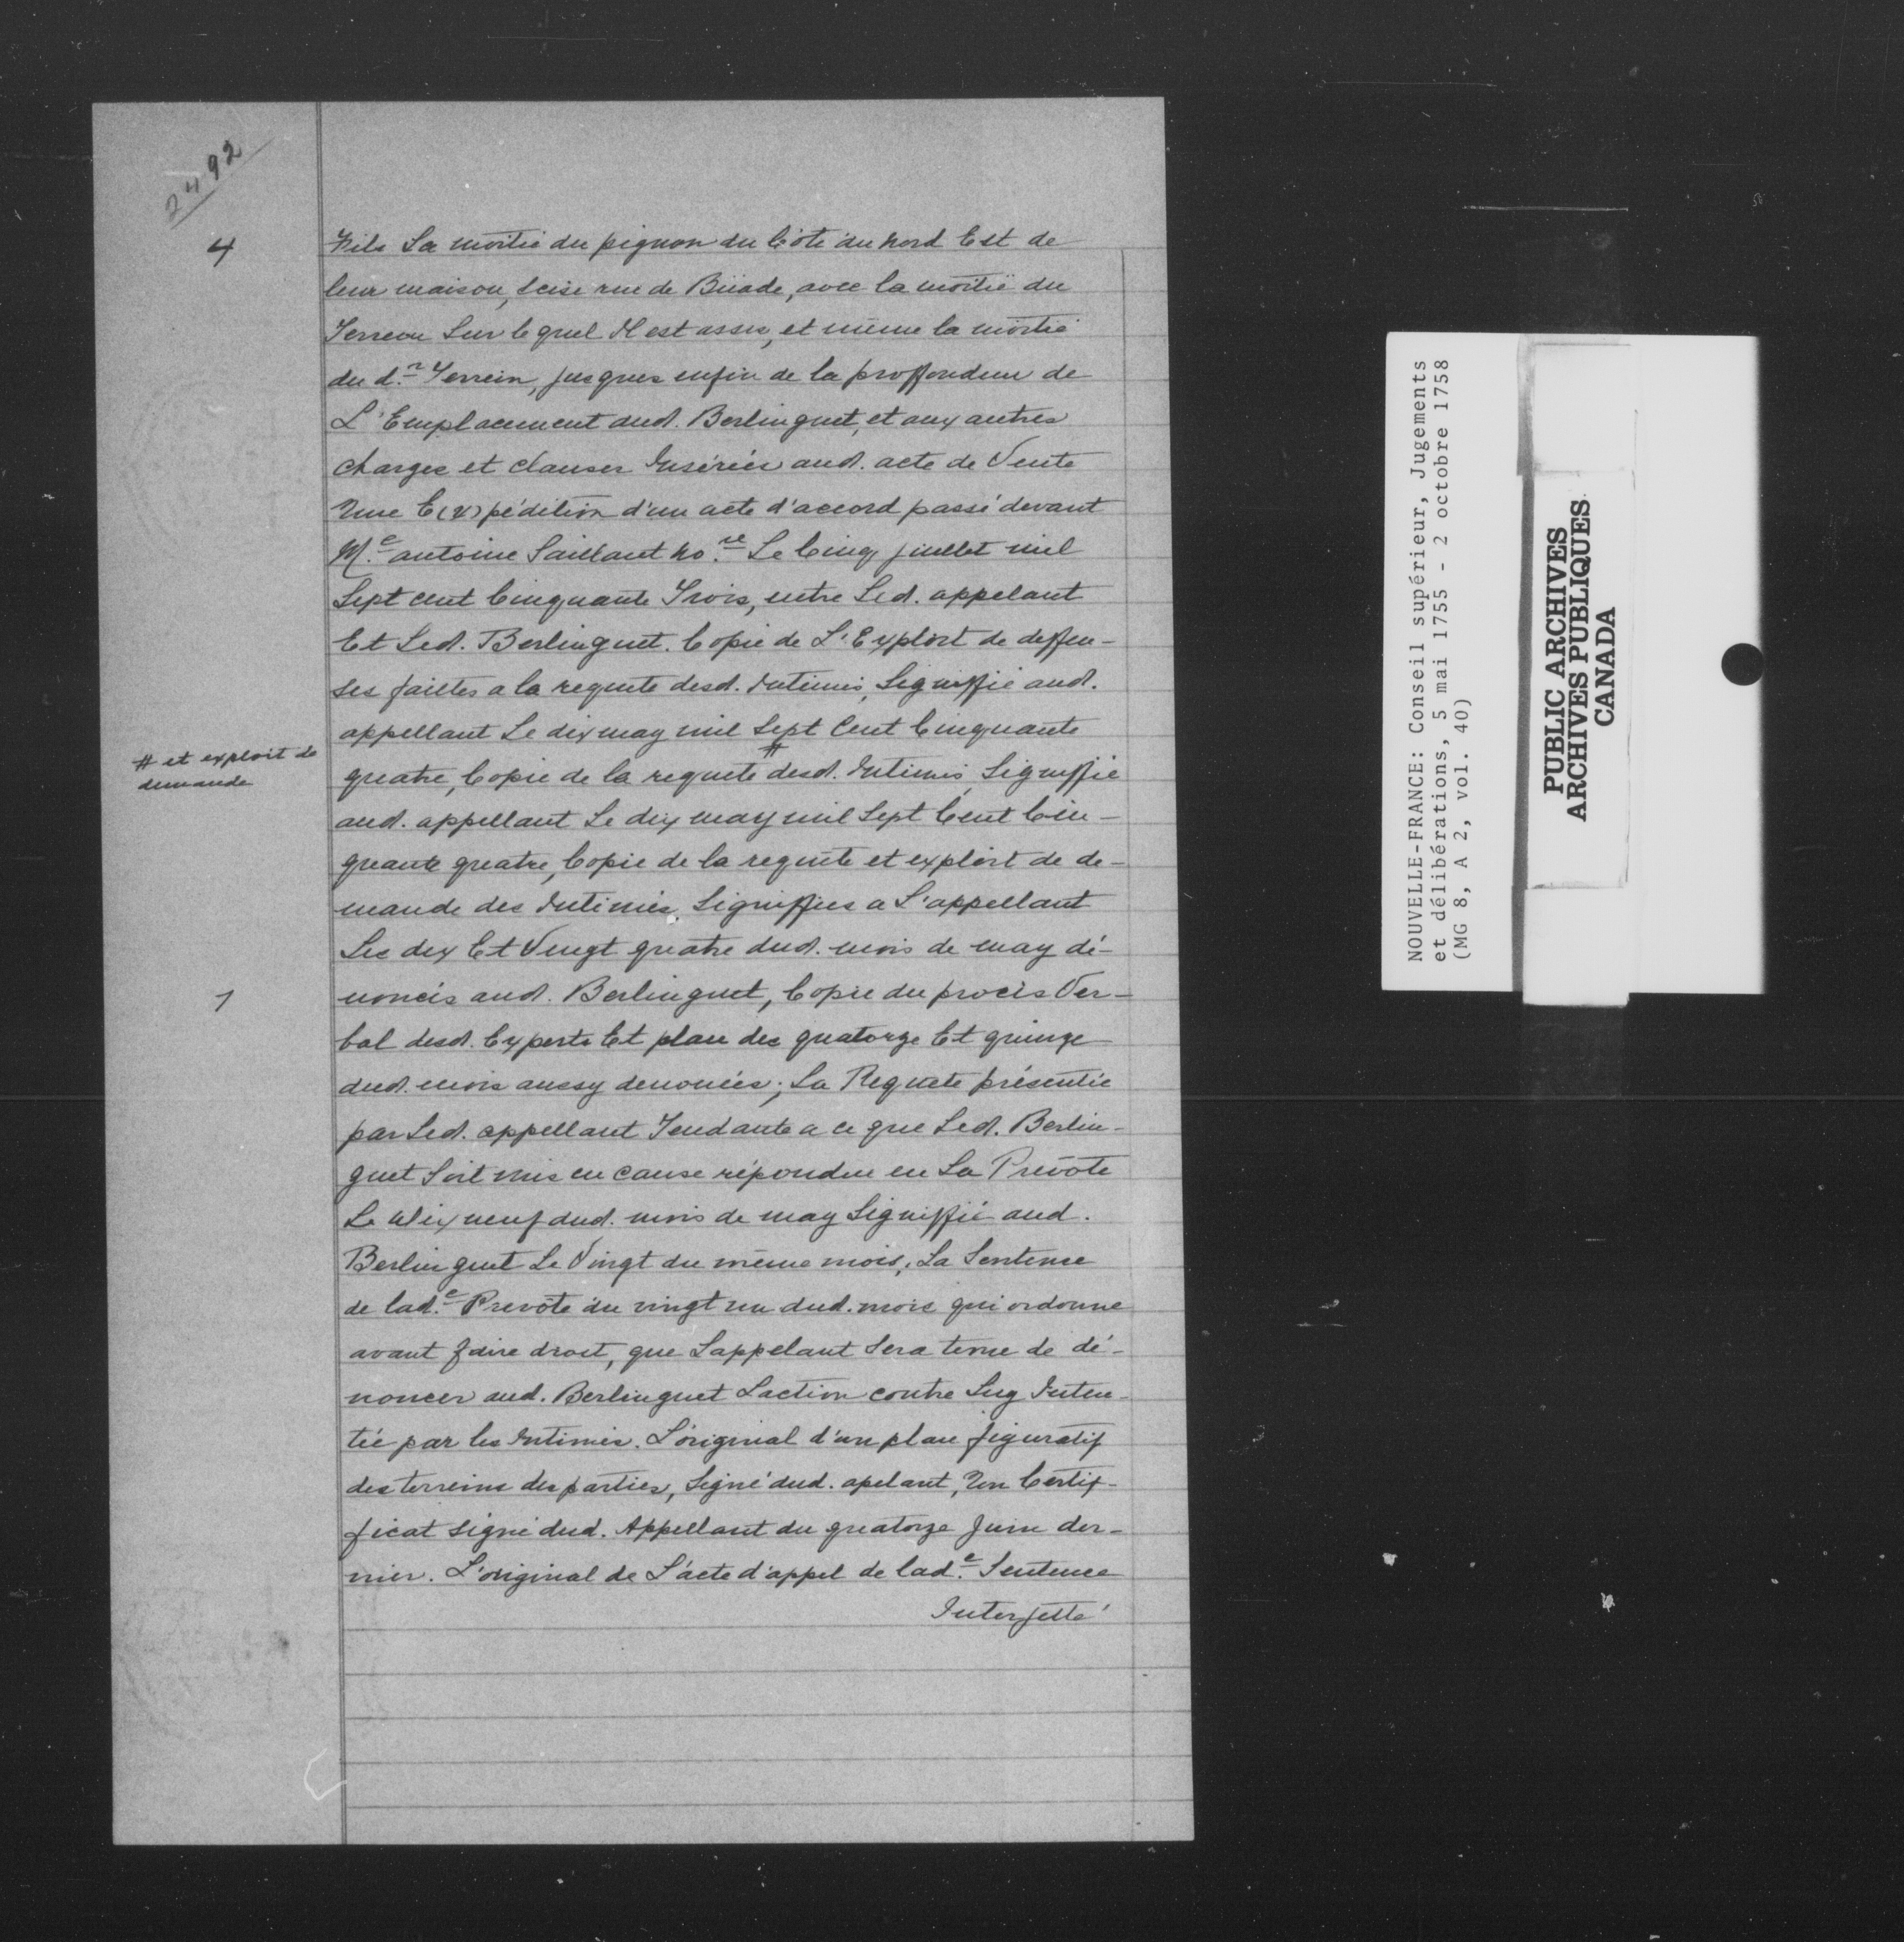 2492
4
fils La moitié du pignon du Côté du nord Est de
leur maison, scise rue de Büade, avec la moitié du
Terrein Sur lequel Il est assis, et même la moitié
du d.n Terrein, jusques enfin de la proffondeur de
L'Emplacement dud. Berlinguet, et aux autres
charges et clauses Insérées aud. acte de Vente
Une E(x)pédition d'un acte d'accord passé devant
M.e antoine Saillant no.re Le Cinq juillet mil
Sept cent Cinquante Trois, entre Led. appelant
Et Led. Berlinguet. Copie de L'Exploit de deffen-
ses faittes a la requete desd. Intimés, Signiffié aud.
appellant Le dix may mil Sept Cent Cinquante
# et exploit de
demande
quatre, Copie de la requete # desd. Intimés, Signiffié
aud. appellant Le dix may mil Sept Cent Cin-
quante quatre, Copie de la requête et exploit de de-
mande des Intimés, Signiffiés a L'appellant
Les dix Et Vingt quatre dud. mois de may dé-
1
noncés aud. Berlinguet, Copie du procès Ver-
bal desd. Experts Et plan des quatorze Et quinze
dud. mois aussy denoncés; La Requete présentée
par Led. appellant Tendante a ce que Led. Berlin-
guet Soit mis en cause répondue en La Prevôté
Le dix neuf dud. mois de may Signiffié aud.
Berlinguet Le Vingt du même mois, La Sentence
de lad.e Prevôté du vingt un dud. mois qui ordonne
avant faire droit, que Lappelant Sera tenu de dé-
noncer aud. Berlinguet Laction contre Luy Inten-
tée par les Intimés. L'original d'un plan figuratif
des terreins des parties, Signé dud. apelant, Un Certif-
ficat signé dud. Appellant du quatorze Juin der-
nier. L'original de L'acte d'appel de lad.e Sentence
Interjetté
NOUVELLE-FRANCE: Conseil supérieur, Jugements
et délibérations, 5 mai 1755 - 2 octobre 1758
(MG 8, A 2, vol. 40)
PUBLIC ARCHIVES
ARCHIVES PUBLIQUES
CANADA